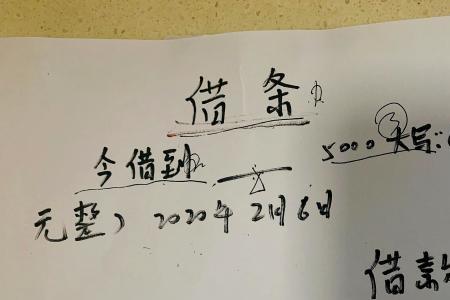 借条
今借到 5000 大写:
元整) 2020年2月6日
借款